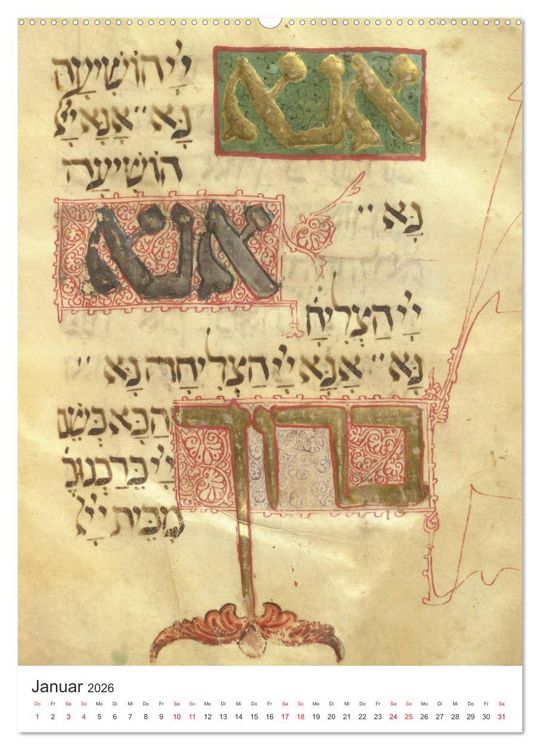 אנא יְיָ הוֹשִׁיעָה
נָא׳׳ אָנָּא יְיָ
הוֹשִׁיעָה
נָא׳׳
אנא
יְיָ הַצְלִיחָ
נָא׳׳ אָנָּא יְיָ הַצְלִיחָה נָא׳׳
ברוך הַבָּא בְּשֵׁם
יְיָ בֵּרַכְנוּכ
מִבֵּית יְיָ
Januar 2026
Do Fr Sa So Mo Di Mi Do Fr Sa So Mo Di Mi Do Fr Sa So Mo Di Mi Do Fr Sa So Mo Di Mi Do Fr Sa
1 2 3 4 5 6 7 8 9 10 11 12 13 14 15 16 17 18 19 20 21 22 23 24 25 26 27 28 29 30 31